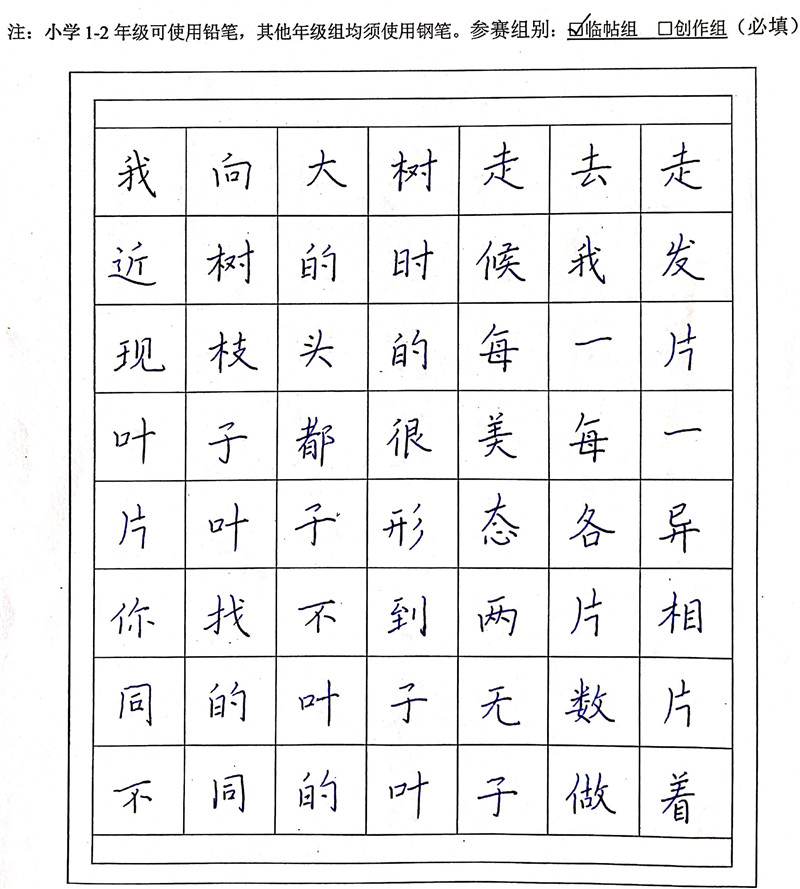 注：小学1-2年级可使用铅笔，其他年级组均须使用钢笔。参赛组别：☑临帖组 □创作组（必填）
我向大树走去走
近树的时候我发
现枝头的每一片
叶子都很美每一
片叶子形态各异
你找不到两片相
同的叶子无数片
不同的叶子做着